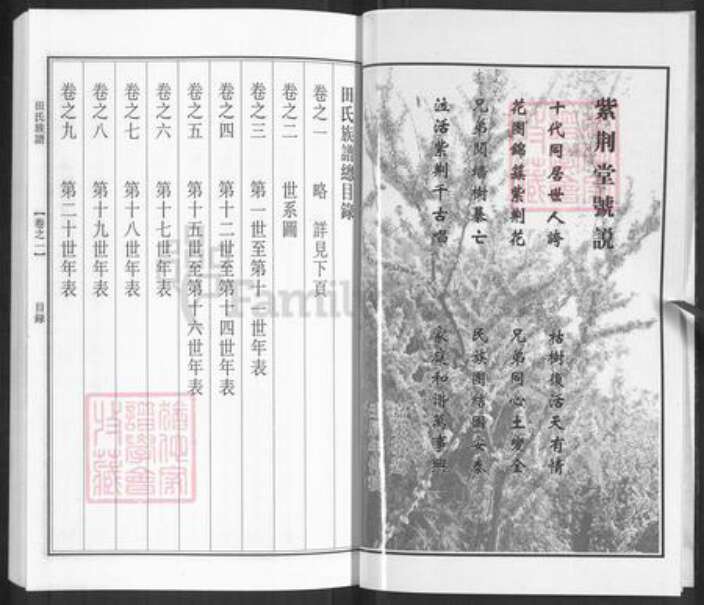 紫荆堂號説
十代同居世人誇 枯樹復活天有情
花團錦簇紫荆花 兄弟同心土變金
兄弟鬩墻樹暴亡 民族團結國安泰
泣活紫荆千古唱 家庭和諧萬事興
田氏族譜總目錄
卷之一 略 詳見下頁
卷之二 世系圖
卷之三 第一世至第十一世年表
卷之四 第十二世至第十四世年表
卷之五 第十五世至第十六世年表
卷之六 第十七世年表
卷之七 第十八世年表
卷之八 第十九世年表
卷之九 第二十世年表
田氏族譜
【卷之一】
目錄